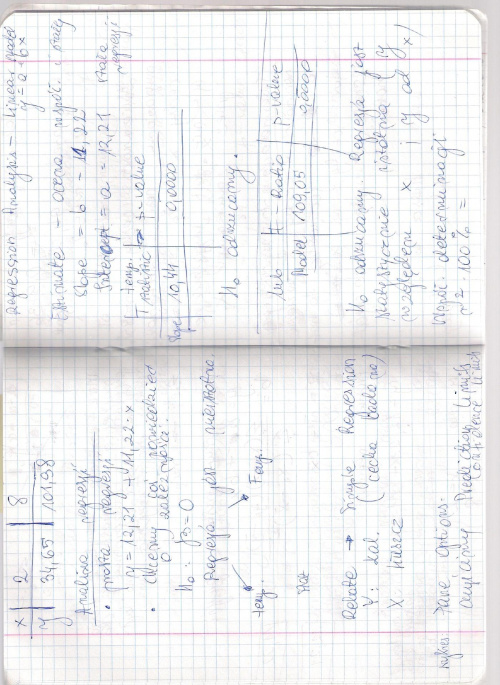 x | 2 | 8
y | 34,65 | 101,98
Analiza regresji
• prosta regresji
y = 12,21 + 11,22·x
• chcemy coś powiedzieć
o zależności
H₀: β = 0
Regresja jest nieistotna
temp. Fary.
Plot
Relate → Simple Regression
Y: zal. (cecha badana)
X
wykres Pane Options-
Prediction Limits
Confidence Limits
Regression Analysis - Linear model
y = a + bx
Estimate - ocena współ. i stałej
Slope = b = 11,22
Intercept = a = 12,21 stała regresji
T statistic | p-value
Slope | 10,44 | 0,0000
H₀ odrzucamy.
lub F-ratio | p-value
Model | 109,05 | 0,0000
H₀ odrzucamy. Regresja jest
statystycznie istotna (y
względem x i y od x)
Współ. determinacji
r² 100% =